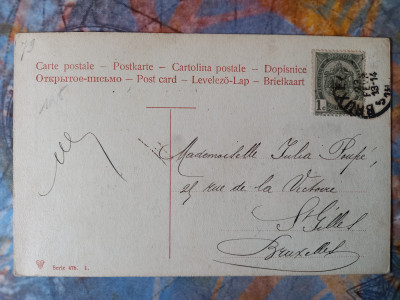 73
Carte postale - Postkarte - Cartolina postale - Dopisnice
Открытое-письмо - Post card - Levelező-Lap - Briefkaart
1
BRUX
Mademoiselle Julia Poupé,
25 rue de la Victoire
St Gilles
Bruxelles
Serie 476. 1.